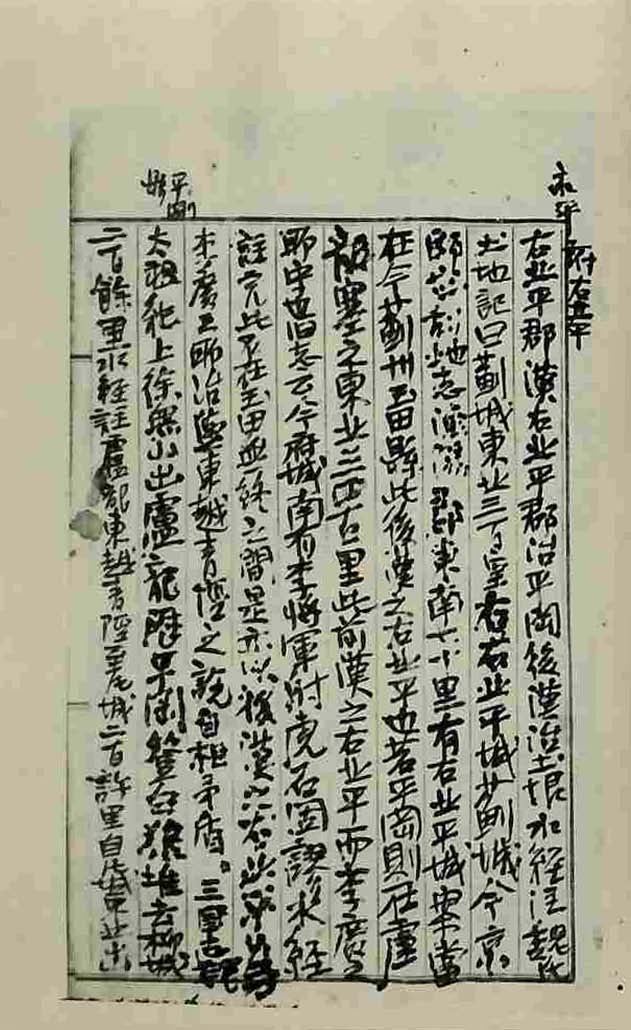 永平
府右北平
右北平郡漢右北平郡治平岡後漢治土垠水經注魏氏
土地記曰薊城東北三百里有右北平城薊城今京
師 括地志漁陽郡東南七十里有右北平城案當
在今薊州玉田縣此後漢之右北平也若平岡則在盧
龍塞之東北三四百里此前漢之右北平而李廣
所守也旧志云今府城南有李將軍射虎石固謬水經
註 此 在玉田無終之間是亦以後漢之右北平為
李廣 所治 東越青陘之說自相矛盾。三國志
太祖 上徐無山出盧龍歷平剛登白狼堆去柳城
二百餘里水經註盧龍東越青陘至凡城二百許里自凡城東北出
平剛